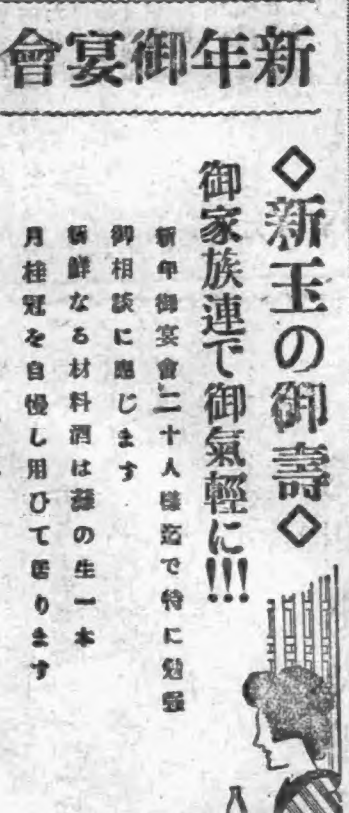 新年御宴會
◇新玉の御壽◇
御家族連で御氣輕に!!!
新年御宴會二十人樣迄で特に勉强
御相談に應じます
新鮮なる材料酒は灘の生一本
月桂冠を自慢し用ひて居ります